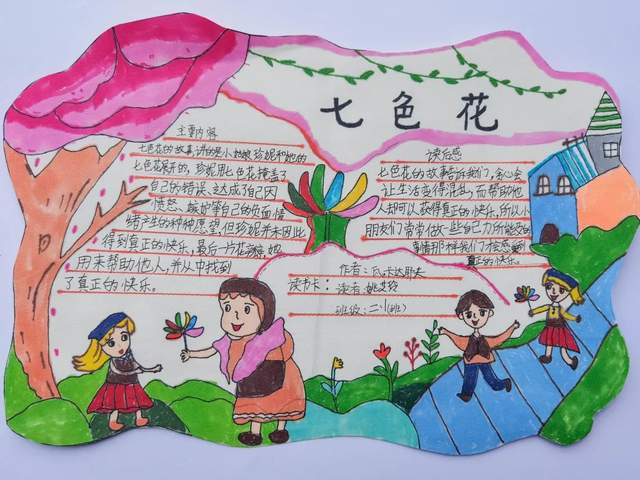 七色花
主要内容
七色花的故事,讲的是小姑娘珍妮和她的
七色花展开的,珍妮用七色花掩盖了
自己的错误,达成了自己因
愤怒、嫉妒等自己的负面情
绪产生的种种愿望,但珍妮并未因此
得到真正的快乐,最后一片花瓣,她
用来帮助他人,并从中找到
了真正的快乐。
读后感
七色花的故事告诉我们,贪心会
让生活变得混乱,而帮助他
人却可以获得真正的快乐,所以小
朋友们常常做一些自己力所能及的
事情,那样我们才能感受到
真正的快乐。
读书卡:
作者:瓦·卡达耶夫
读者:姚艾
班级:二·1(班)